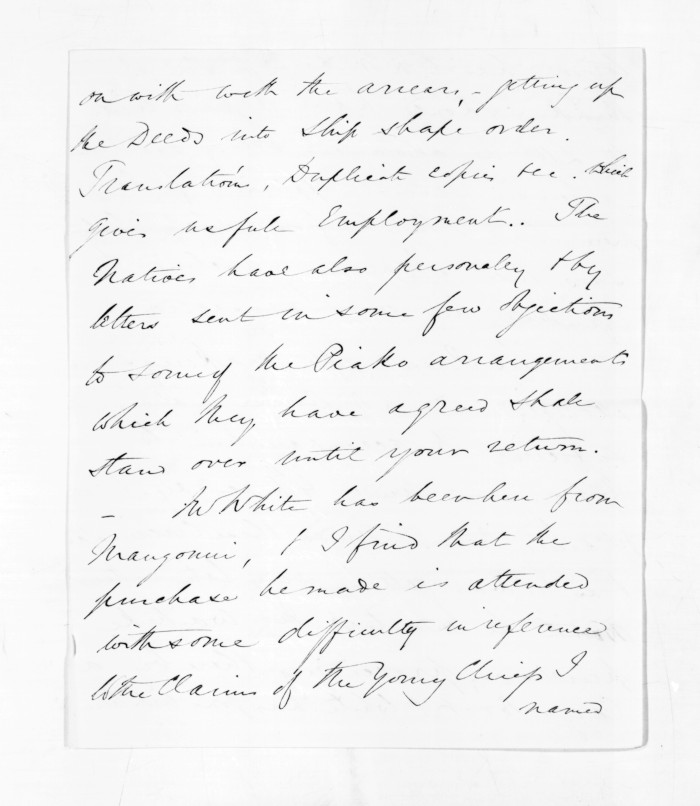 on with with the arrears, - getting up
the Deeds into Ship shape order.
Translations, Duplicate copies &c. which
gives usefull Employment.. The
Natives have also personaly & by
letters sent in some few objections
to some of the Piako arrangements
which they have agreed shall
stand over until your return.
- Mr White has been here from
Mangonui, & I find that the
purchase he made is attended
with some difficulty in reference
to the Claims of the Young Chiefs I
named